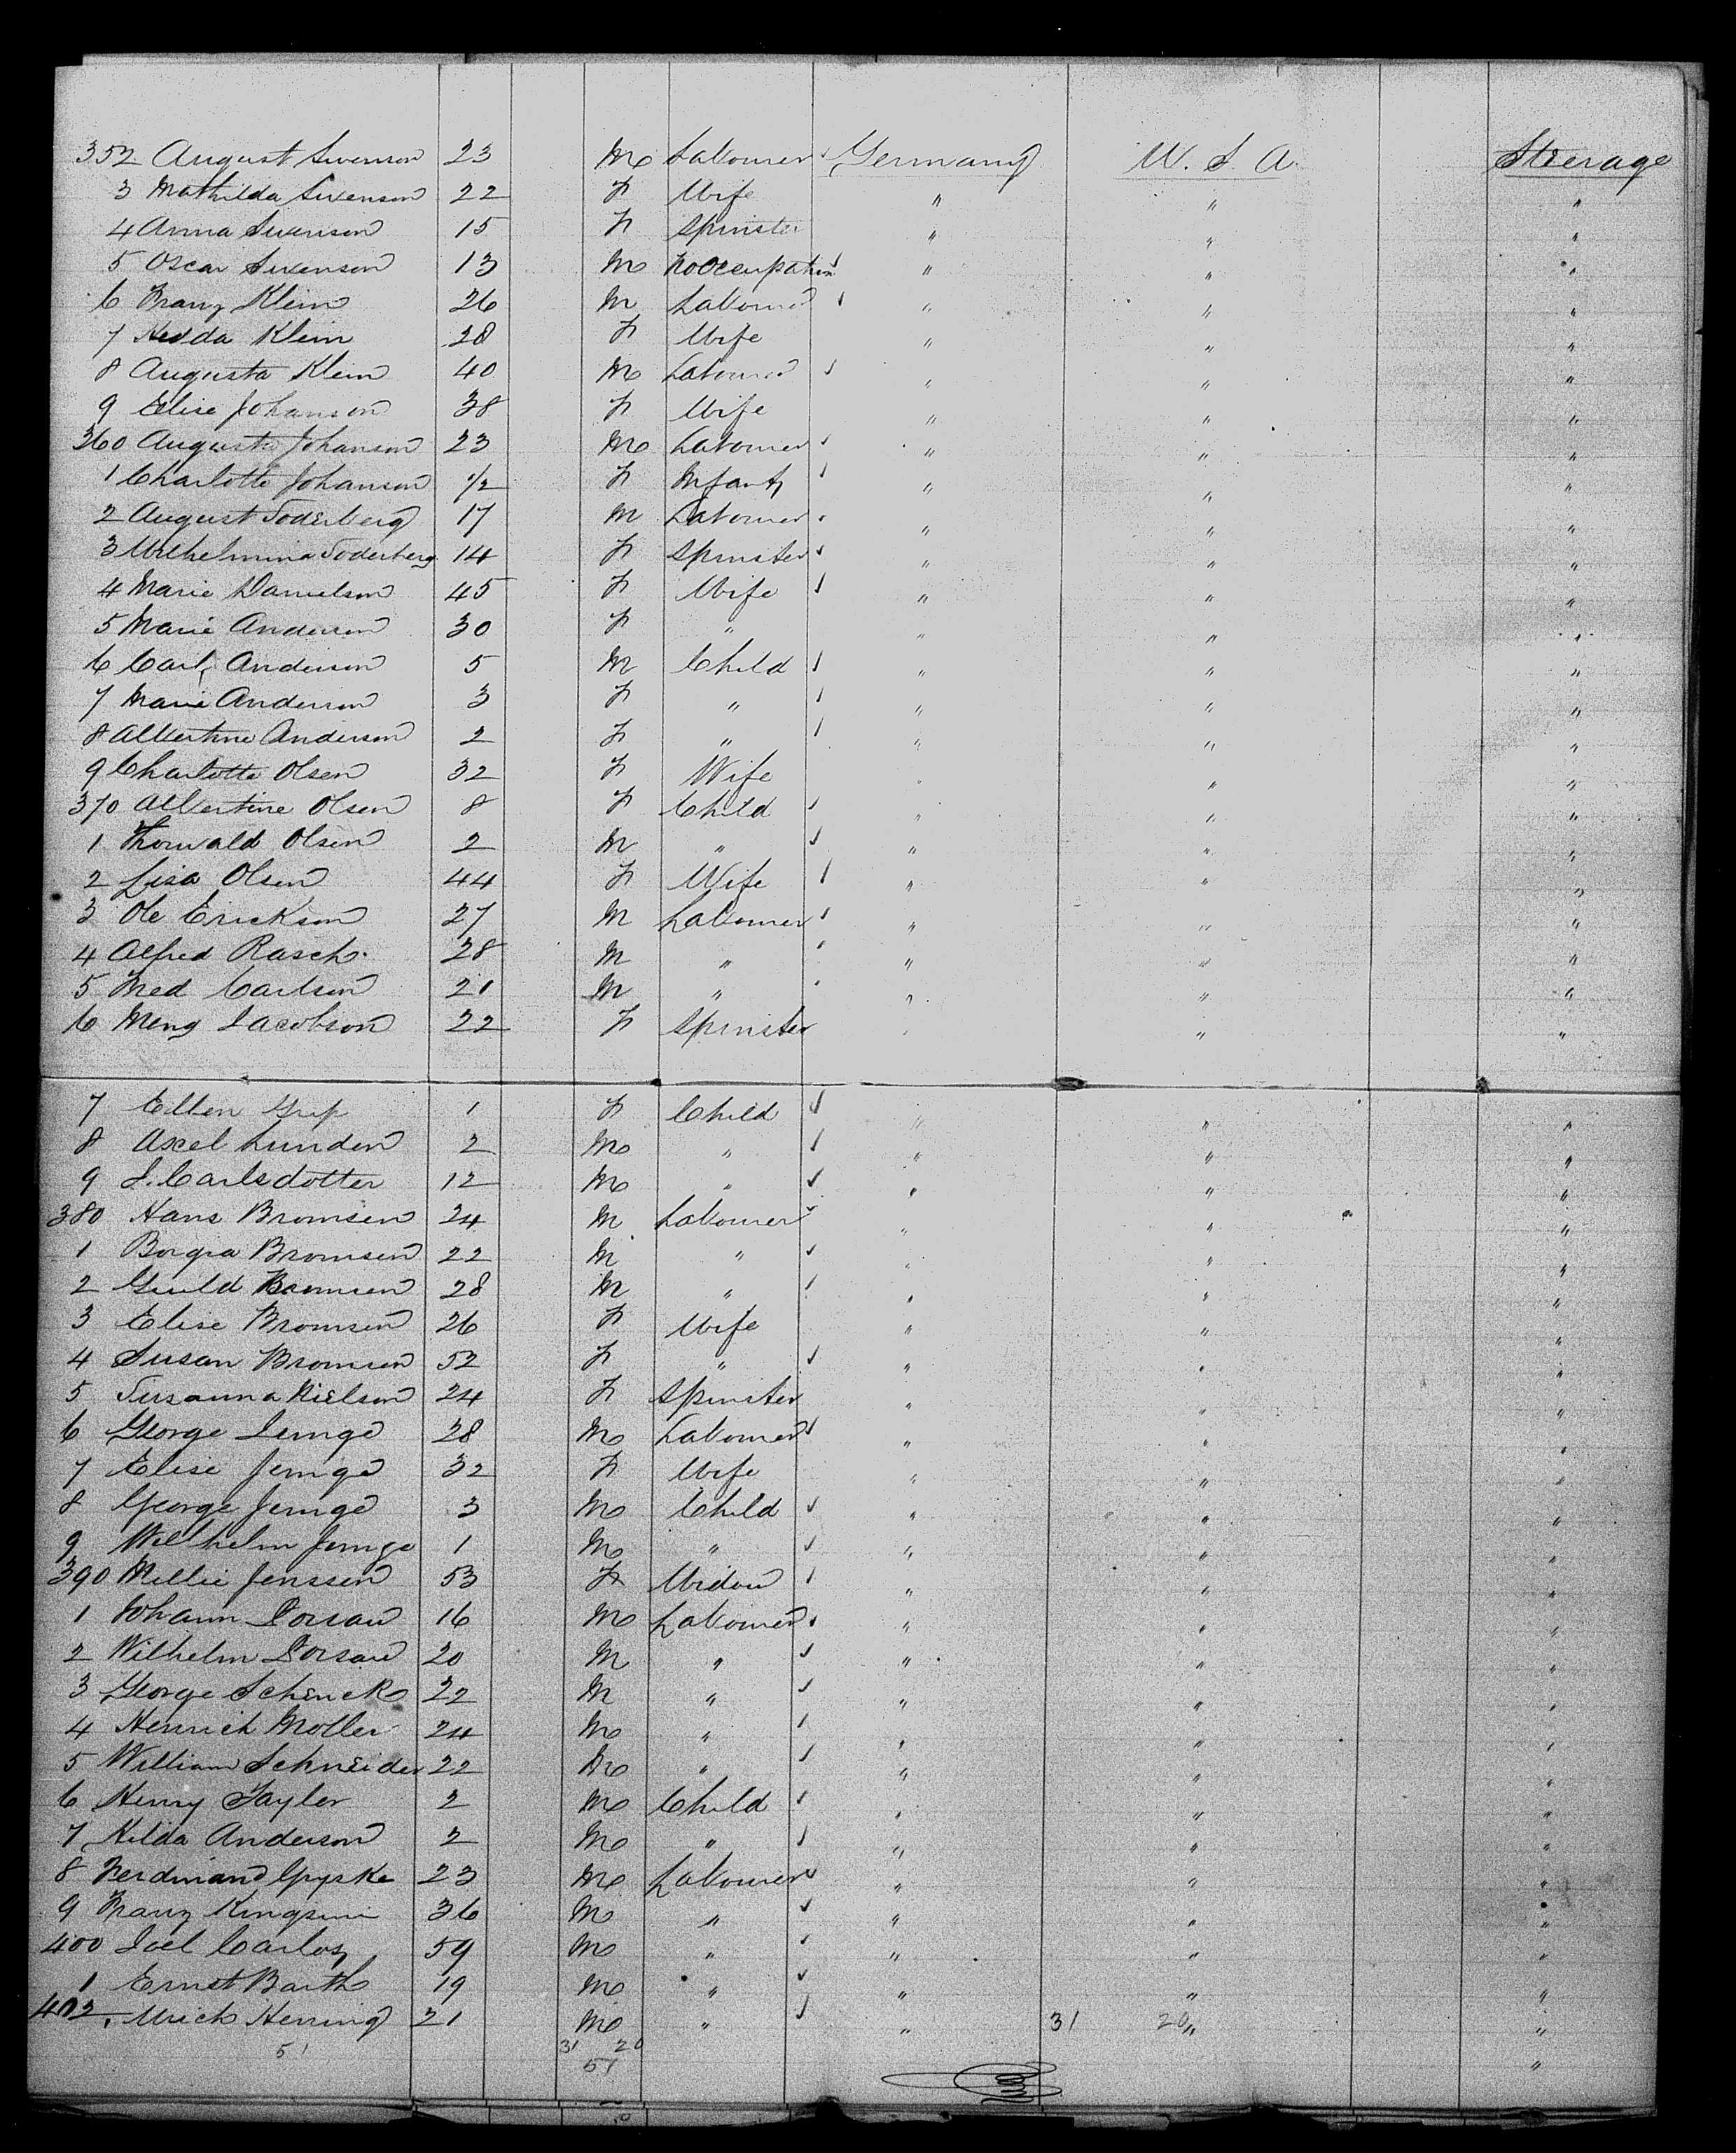 352 August Swenson 23 M Labourer Germany U. S. A. Steerage
3 Mathilda Swenson 22 F Wife " " "
4 Anna Swenson 15 F Spinster " " "
5 Oscar Swenson 13 M No Occupation " " "
6 Franz Klein 26 M Labourer " " "
7 Hedda Klein 28 F Wife " " "
8 Augusta Klein 40 M Labourer " " "
9 Elise Johanson 38 F Wife " " "
360 Augusta Johanson 23 M Labourer " " "
1 Charlotte Johanson 1/2 F Infant " " "
2 August Soderberg 17 M Labourer " " "
3 Wilhelmina Soderberg 14 F Spinster " " "
4 Marie Danielson 45 F Wife " " "
5 Marie Anderson 30 F " " " "
6 Carl Anderson 5 M Child " " "
7 Marie Anderson 3 F " " " "
8 Albertine Anderson 2 F " " " "
9 Charlotte Olsen 32 F Wife " " "
370 Albertine Olsen 8 F Child " " "
1 Thorwald Olsen 2 M " " " "
2 Lisa Olsen 44 F Wife " " "
3 Ole Erickson 27 M Labourer " " "
4 Alfred Rasch 28 M " " " "
5 Fred Carlson 21 M " " " "
6 Meng Jacobson 22 F Spinster " " "
7 Ellen Grip 1 F Child " " "
8 Axel Lunden 2 M " " " "
9 J. Carlsdotter 12 M " " " "
380 Hans Bromsen 24 M Labourer " " "
1 Borgia Bromsen 22 M " " " "
2 Bromsen 28 M " " " "
3 Elise Bromsen 26 F Wife " " "
4 Susan Bromsen 52 F " " " "
5 Susanna Nielson 24 F Spinster " " "
6 George Jemge 28 M Labourer " " "
7 Elise Jemge 32 F Wife " " "
8 George Jemge 3 M Child " " "
9 Wilhelm Jemge 1 M " " " "
390 Millie Jenssen 53 F Widow " " "
1 Johann Dorsau 16 M Labourer " " "
2 Wilhelm Dorsau 20 M " " " "
3 George Schenck 22 M " " " "
4 Henrich Moller 24 M " " " "
5 William Schneider 22 M " " " "
6 Henry Taylor 2 M Child " " "
7 Hilda Anderson 2 M " " " "
8 Ferdinand Gyske 23 M Labourer " " "
9 Franz 36 M " " " "
400 Joel Carlos 59 M " " " "
1 Ernst Barth 19 M " " " "
402 Ulrich Herring 21 M " " 31 20 " "
51 31 20 "
51